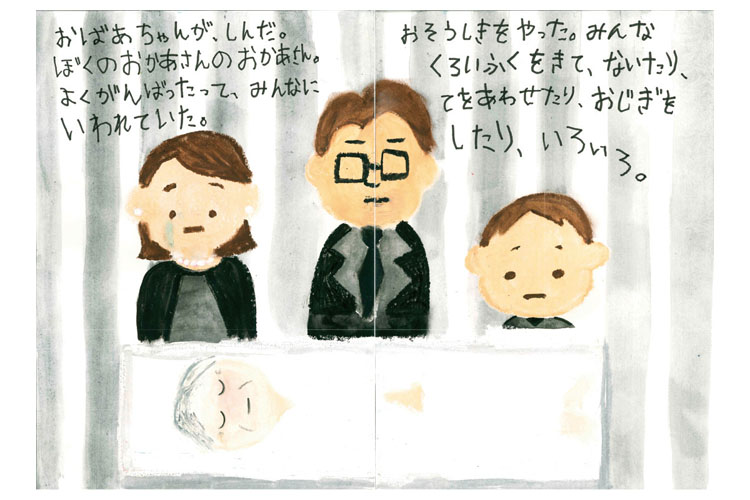 おばあちゃんが、しんだ。
ぼくのおかあさんのおかあさん。
よくがんばったって、みんなに
いわれていた。
おそうしきをやった。みんな
くろいふくをきて、ないたり、
てをあわせたり、おじぎを
したり、いろいろ。